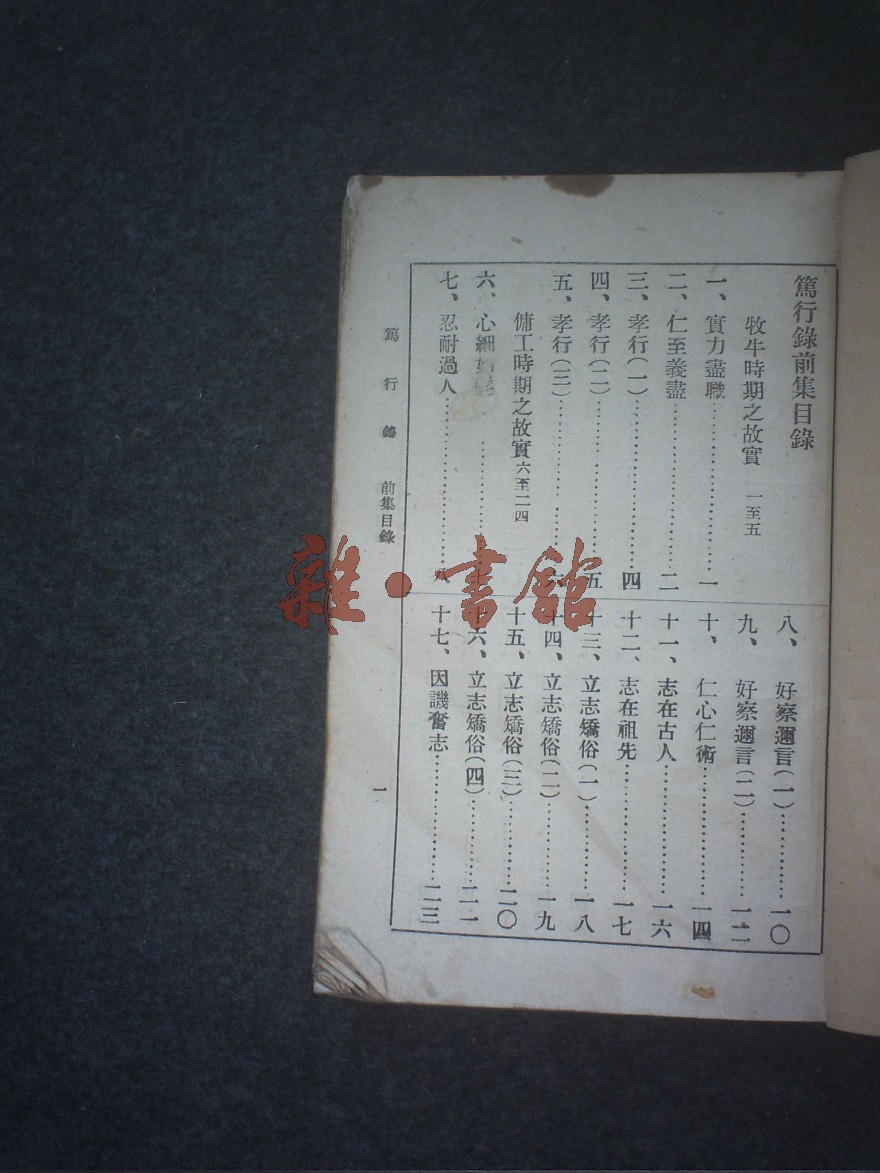 篤行錄前集目錄
牧牛時期之故實 一至五
一、實力盡職…………………一
二、仁至義盡…………………二
三、孝行(一)…………………四
四、孝行(二)…………………五
五、孝行(三)…………………六
傭工時期之故實 六至二四
六、心細
七、忍耐過人…………………八
八、好察邇言(一)……………一〇
九、好察邇言(二)……………一二
十、仁心仁術…………………一四
十一、志在古人………………一六
十二、志在祖先………………一七
十三、立志矯俗(一)…………一八
十四、立志矯俗(二)…………一九
十五、立志矯俗(三)…………二〇
十六、立志矯俗(四)…………二一
十七、因譏奮志………………二三
篤行錄 前集目錄
一
雜·書館